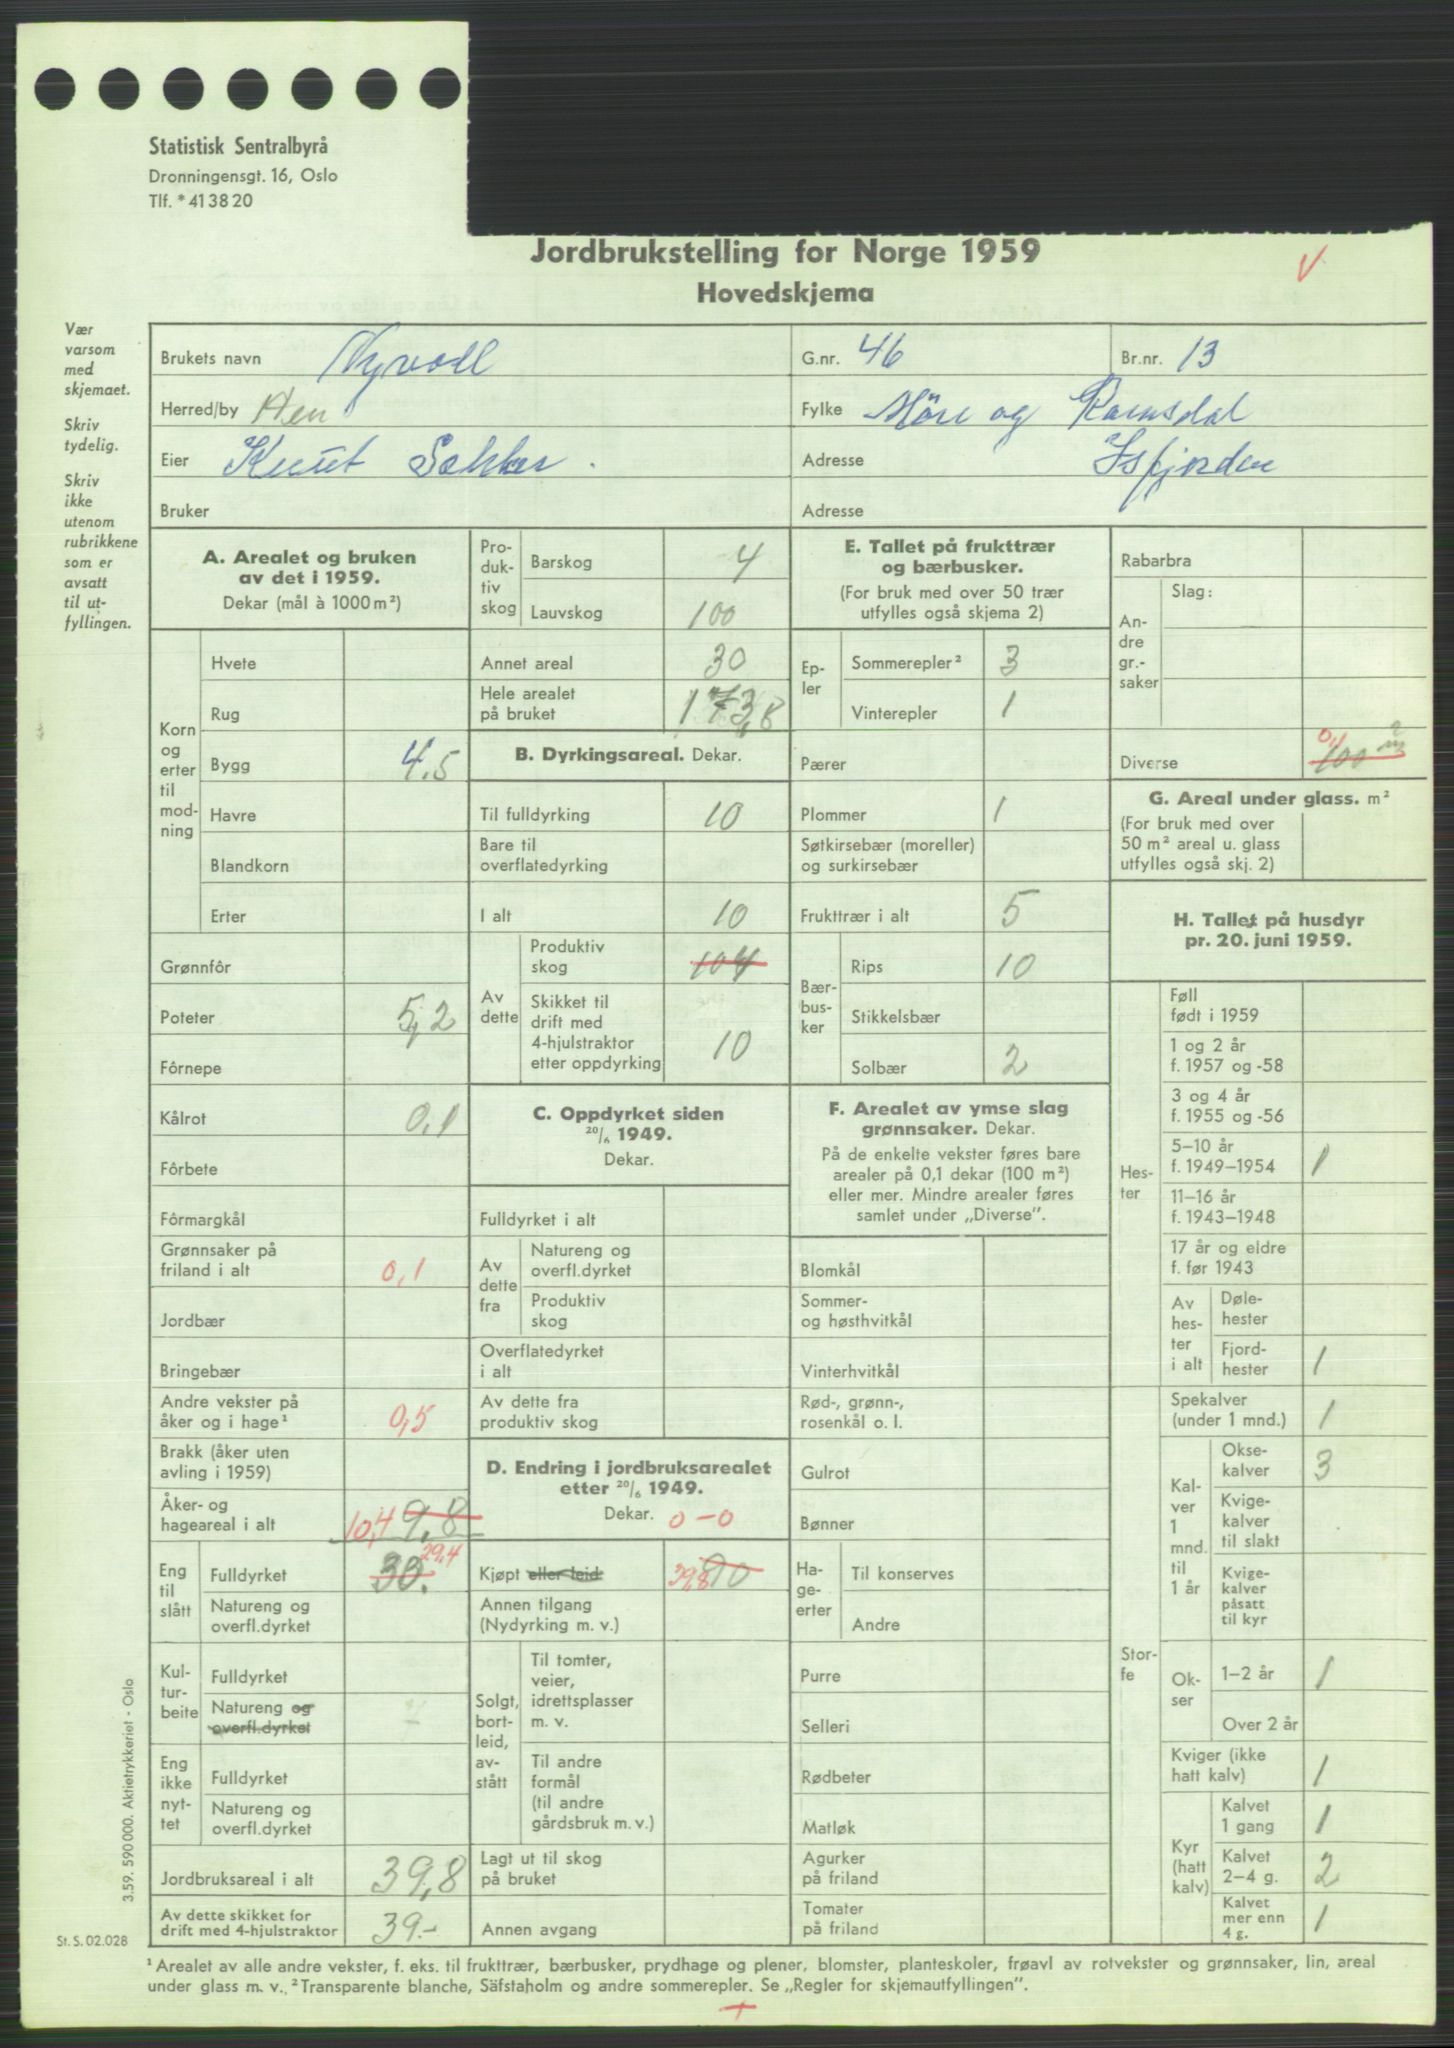 Statistisk Sentralbyrå
Dronningensgt. 16, Oslo
Tlf. * 41 38 20
Jordbrukstelling for Norge 1959
Hovedskjema
Vær
varsom
med
skjemaet.
Skriv
tydelig.
Skriv
ikke
utenom
rubrikkene
som er
avsatt
til ut-
fyllingen.
Brukets navn Nyvoll G.nr. 46 Br.nr. 13
Herred/by Hen Fylke Möre og Romsdal
Eier Knut Sekker. Adresse Isfjorden
Bruker Adresse
A. Arealet og bruken
av det i 1959.
Dekar (mål à 1000 m²)
Korn
og
erter
til
mod-
ning
Hvete
Rug
Bygg 4,5
Havre
Blandkorn
Erter
Grønnfôr
Poteter 5,2
Fôrnepe
Kålrot 0,1
Fôrbete
Fôrmargkål
Grønnsaker på
friland i alt 0,1
Jordbær
Bringebær
Andre vekster på
åker og i hage¹ 0,5
Brakk (åker uten
avling i 1959)
Åker- og
hageareal i alt 10,4 9,8
Eng
til
slått
Fulldyrket 30. 29,4
Natureng og
overfl.dyrket
Kul-
tur-
beite
Fulldyrket
Natureng og
overfl.dyrket
Eng
ikke
nyt-
tet
Fulldyrket
Natureng og
overfl.dyrket
Jordbruksareal i alt 39,8
Av dette skikket for
drift med 4-hjulstraktor 39.-
Pro-
duk-
tiv
skog
Barskog 4
Lauvskog 100
Annet areal 30
Hele arealet
på bruket 173,8
B. Dyrkingsareal. Dekar.
Til fulldyrking 10
Bare til
overflatedyrking
I alt 10
Av
dette
Produktiv
skog 104
Skikket til
drift med
4-hjulstraktor
etter oppdyrking 10
C. Oppdyrket siden
20/6 1949.
Dekar.
Fulldyrket i alt
Av
dette
fra
Natureng og
overfl.dyrket
Produktiv
skog
Overflatedyrket
i alt
Av dette fra
produktiv skog
D. Endring i jordbruksarealet
etter 20/6 1949.
Dekar. 0-0
Kjøpt eller leid 39,8
Annen tilgang
(Nydyrking m. v.)
Solgt,
bort-
leid,
av-
stått
Til tomter,
veier,
idrettsplasser
m. v.
Til andre
formål
(til andre
gårdsbruk m. v.)
Lagt ut til skog
på bruket
Annen avgang
E. Tallet på frukttrær
og bærbusker.
(For bruk med over 50 trær
utfylles også skjema 2)
Ep-
ler
Sommerepler² 3
Vinterepler 1
Pærer
Plommer 1
Søtkirsebær (moreller)
og surkirsebær
Frukttrær i alt 5
Bær-
bus-
ker
Rips 10
Stikkelsbær
Solbær 2
F. Arealet av ymse slag
grønnsaker. Dekar.
På de enkelte vekster føres bare
arealer på 0,1 dekar (100 m²)
eller mer. Mindre arealer føres
samlet under „Diverse”.
Blomkål
Sommer-
og høsthvitkål
Vinterhvitkål
Rød-, grønn-,
rosenkål o. l.
Gulrot
Bønner
Ha-
ge-
erter
Til konserves
Andre
Purre
Selleri
Rødbeter
Matløk
Agurker
på friland
Tomater
på friland
Rabarbra
An-
dre
gr.-
saker
Slag:
Diverse 0,1 100 m²
G. Areal under glass. m²
(For bruk med over
50 m² areal u. glass
utfylles også skj. 2)
H. Tallet på husdyr
pr. 20. juni 1959.
Hes-
ter
Føll
født i 1959
1 og 2 år
f. 1957 og -58
3 og 4 år
f. 1955 og -56
5–10 år
f. 1949–1954 1
11–16 år
f. 1943–1948
17 år og eldre
f. før 1943
Av
hes-
ter
i alt
Døle-
hester
Fjord-
hester 1
Stor-
fe
Spekalver
(under 1 mnd.) 1
Kal-
ver
1
mnd.
til
1 år
Okse-
kalver 3
Kvige-
kalver
til slakt
Kvige-
kalver
påsatt
til kyr
Ok-
ser
1–2 år 1
Over 2 år
Kviger (ikke
hatt kalv) 1
Kyr
(hatt
kalv)
Kalvet
1 gang 1
Kalvet
2–4 g. 2
Kalvet
mer enn
4 g. 1
3.59. 590 000. Aktietrykkeriet - Oslo
St. S. 02.028
¹ Arealet av alle andre vekster, f. eks. til frukttrær, bærbusker, prydhage og plener, blomster, planteskoler, frøavl av rotvekster og grønnsaker, lin, areal
under glass m. v. ² Transparente blanche, Säfstaholm og andre sommerepler. Se „Regler for skjemautfyllingen”.